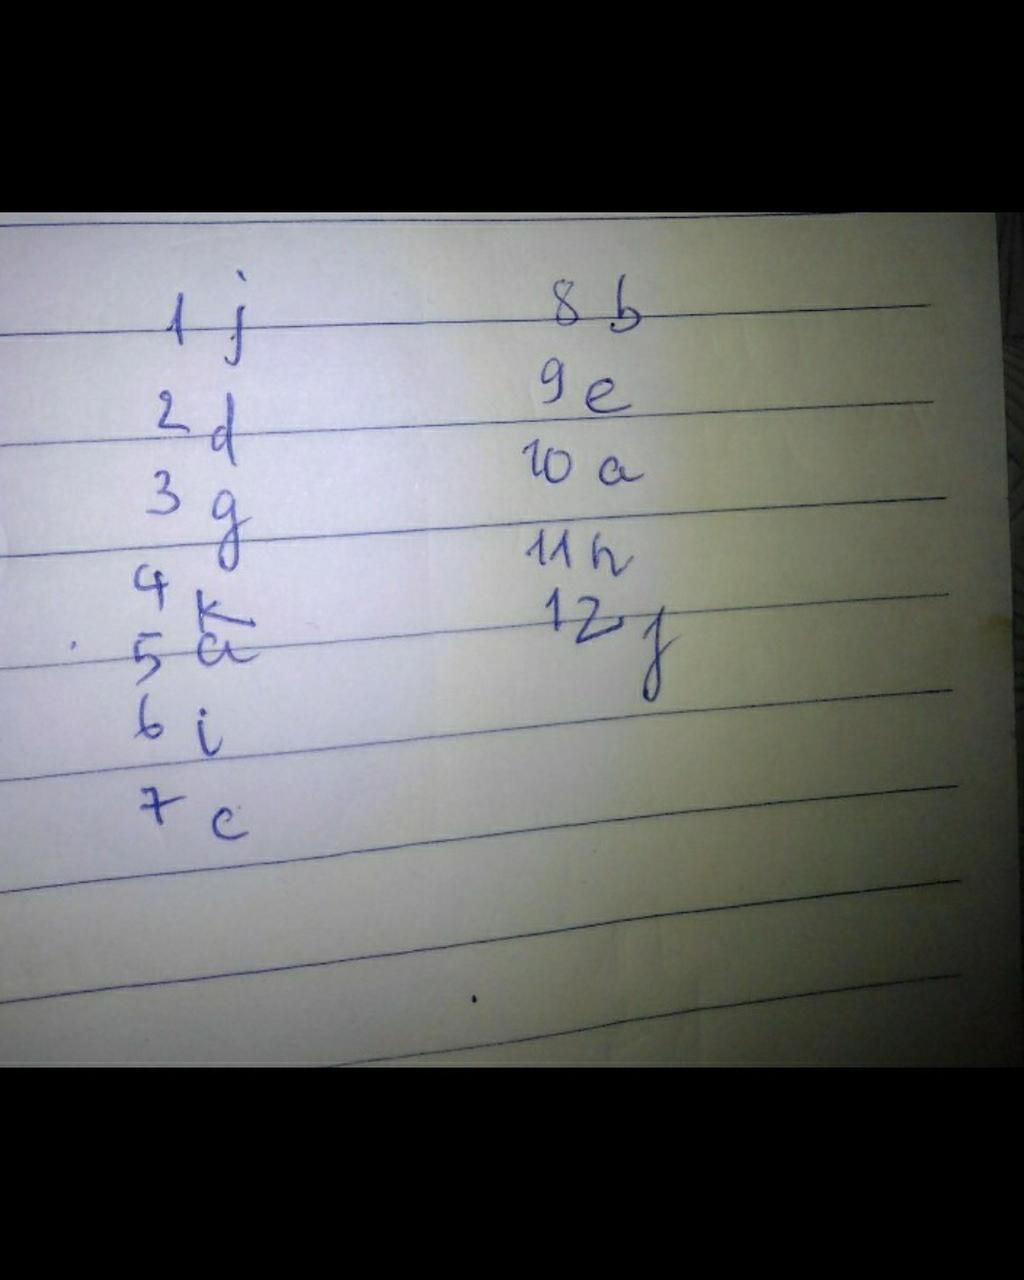 1 j
2 d
3 g
4 k
5 a
6 i
7 c
8 b
9 e
10 a
11 h
12 f